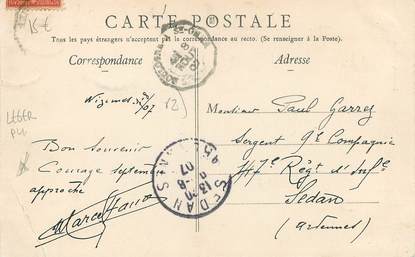 CARTE POSTALE
Tous les pays étrangers n'acceptent pas la correspondance au recto. (Se renseigner à la Poste).
Correspondance
Adresse
15€
LEGER
PLI
12)
07
Bon Souvenir
Courage septembre
approche
Monsieur Paul Garrez
Sergent 9e Compagnie
147e Régt d'Infie
Sedan
(Ardennes)
SEDAN
13-8
07